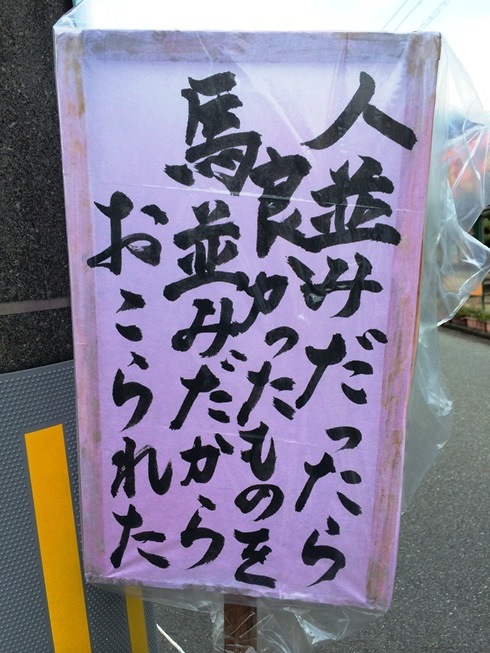 人並みだったら
良かったものを
馬並みだから
おこられた